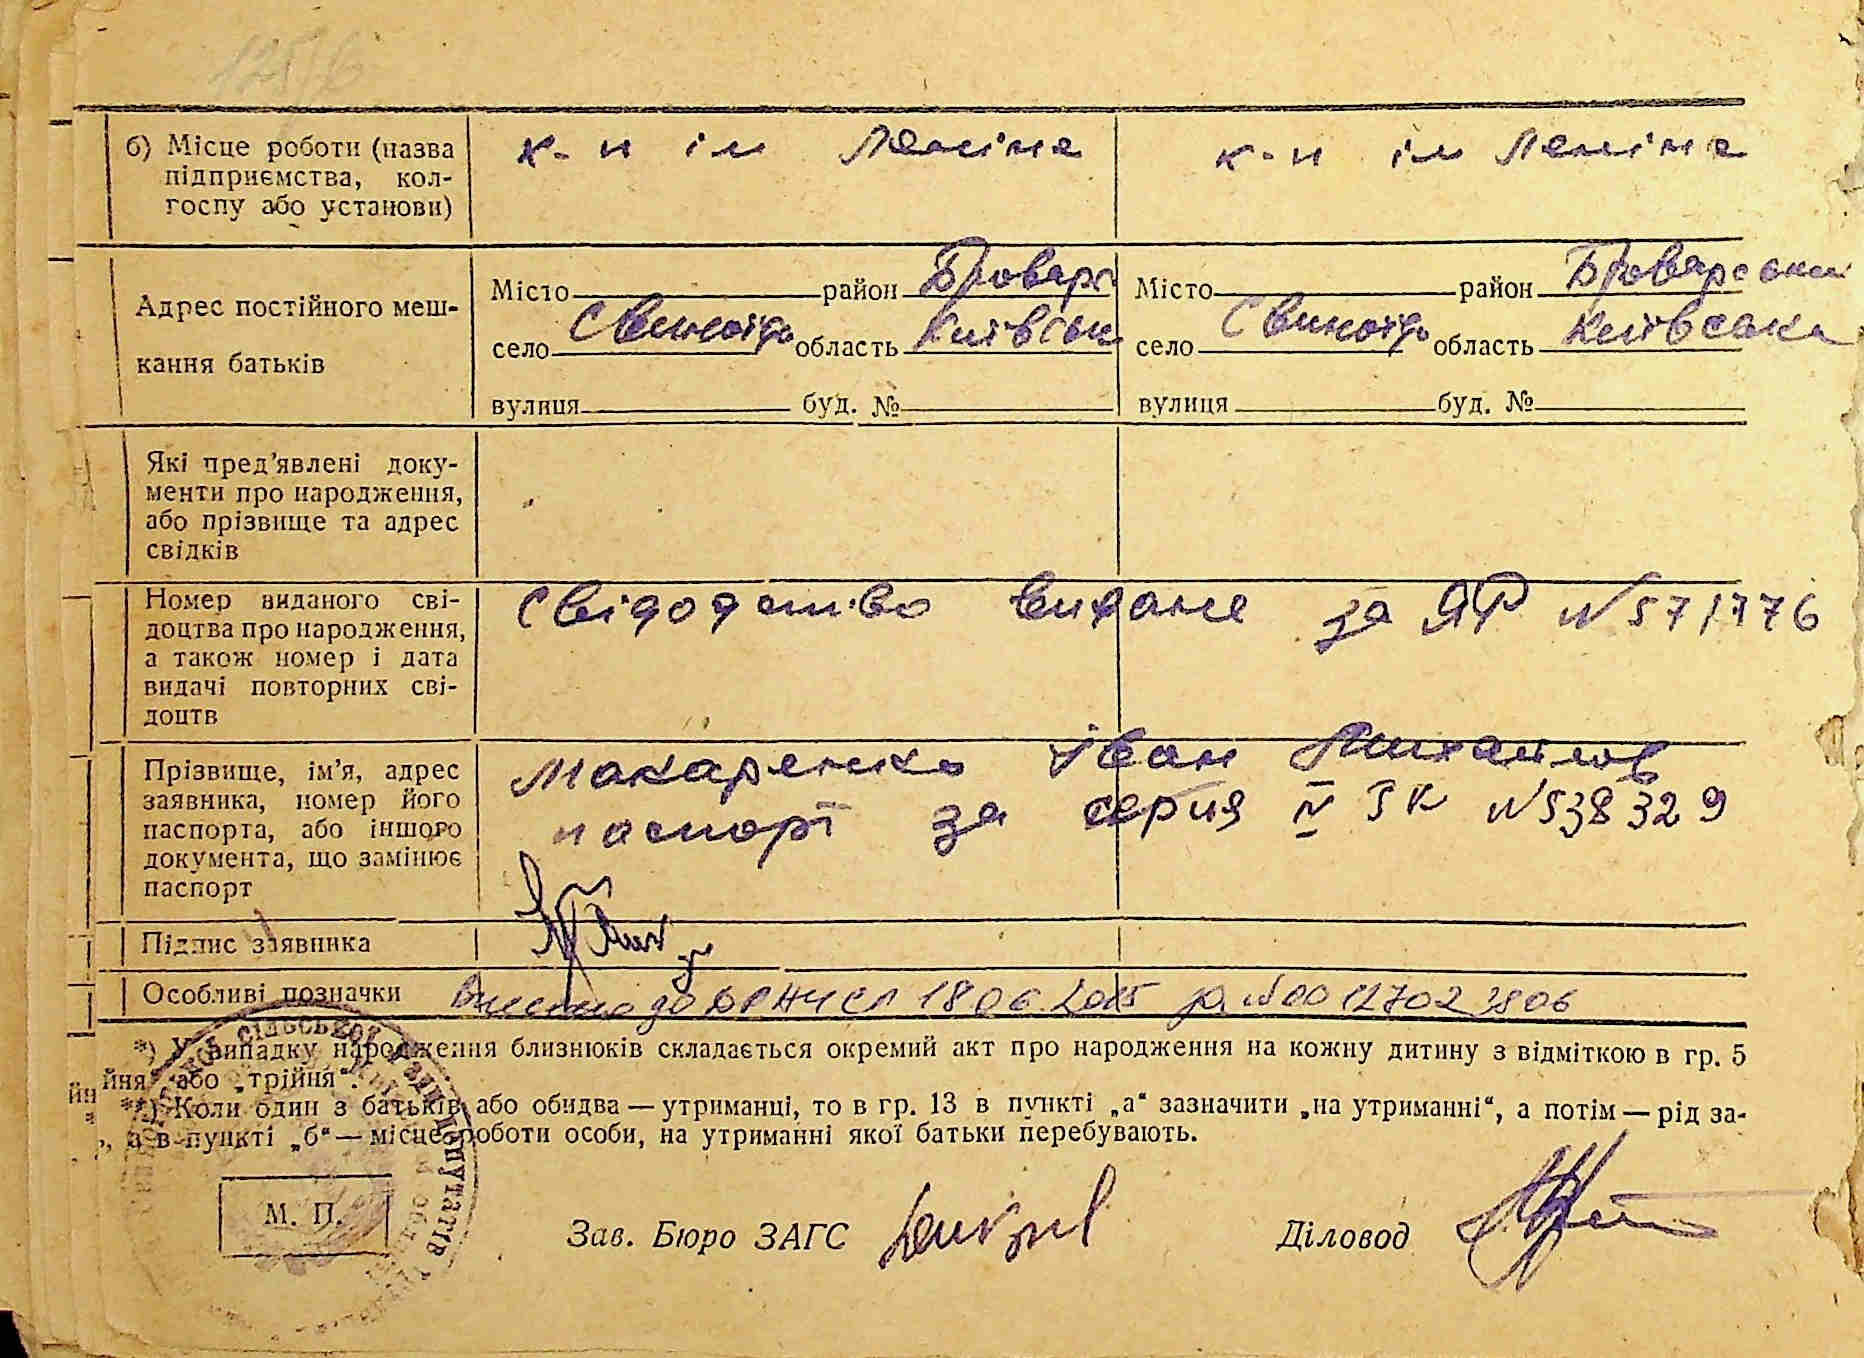 125/6
б) Місце роботи (назва
підприємства, кол-
госпу або установи)
к-п ім Леніна
к-п ім Леніна
Адрес постійного меш-
кання батьків
Місто район Броварс
село область Київськ
вулиця буд. №
Місто район Броварськи
село область Київська
вулиця буд. №
Які пред’явлені доку-
менти про народження,
або прізвище та адрес
свідків
Номер виданого сві-
доцтва про народження,
а також номер і дата
видачі повторних сві-
доцтв
Свідодство видане за ЯР N 571776
Прізвище, ім’я, адрес
заявника, номер його
паспорта, або іншого
документа, що замінює
паспорт
Макаренко Іван Михайлов
паспорт за серия IV ЗК N 538329
Підпис заявника
Особливі позначки
Внесено до ДРАЦС 18 06 2015 за №00127023806
*) У випадку народження близнюків складається окремий акт про народження на кожну дитину з відміткою в гр. 5
йня“ або „трійня“.
**) Коли один з батьків або обидва — утриманці, то в гр. 13 в пункті „а“ зазначити „на утриманні“, а потім — рід за-
, а в пункті „б“ — місце роботи особи, на утриманні якої батьки перебувають.
сільської Ради депутатів
М. П.
Зав. Бюро ЗАГС
Діловод